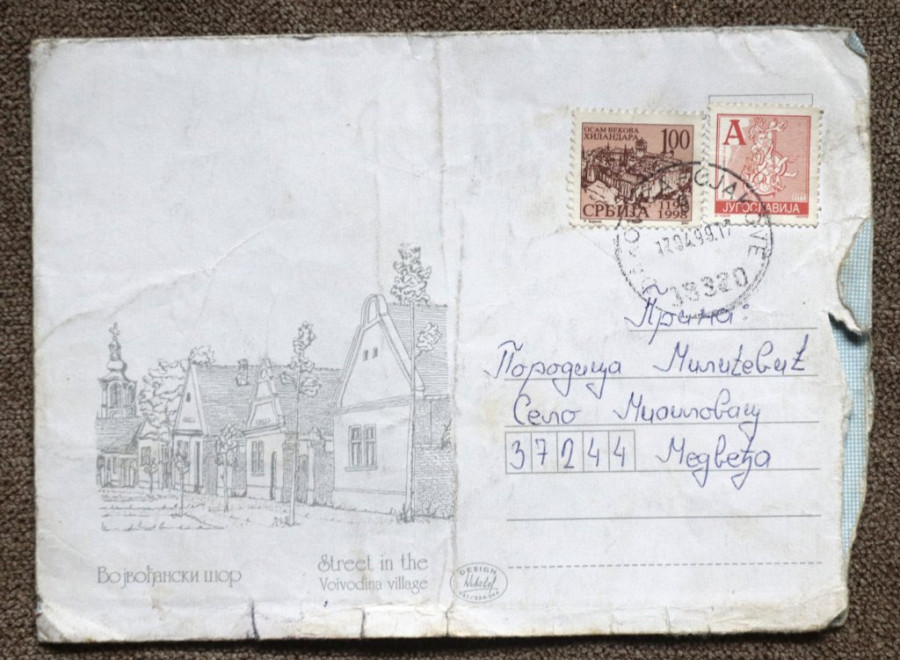 ОСАМ ВЕКОВА
ХИЛАНДАРА
100
СРБИЈА
1998
А
ЈУГОСЛАВИЈА
17.04.99.17
18320
Прима:
Породица Милићевић
Село
37244 Медвеђа
Војвођански шор
Street in the
Voivodina village
DESIGN